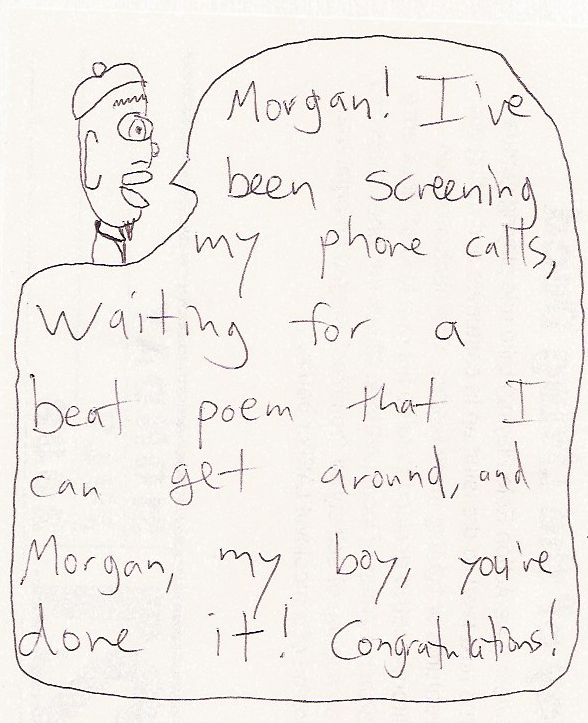 Morgan! I've
been screening
my phone calls,
Waiting for a
beat poem that I
can get around, and
Morgan, my boy, you've
done it! Congratulations!